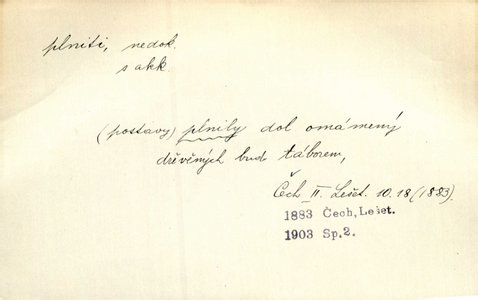 plniti, nedok.
s akk.
(postavy) plnily dol omámený
dřěvěných bud táborem,
Čech II. Lešet. 10.18 (1883).
1883 Čech, Lešet.
1903 Sp.2.